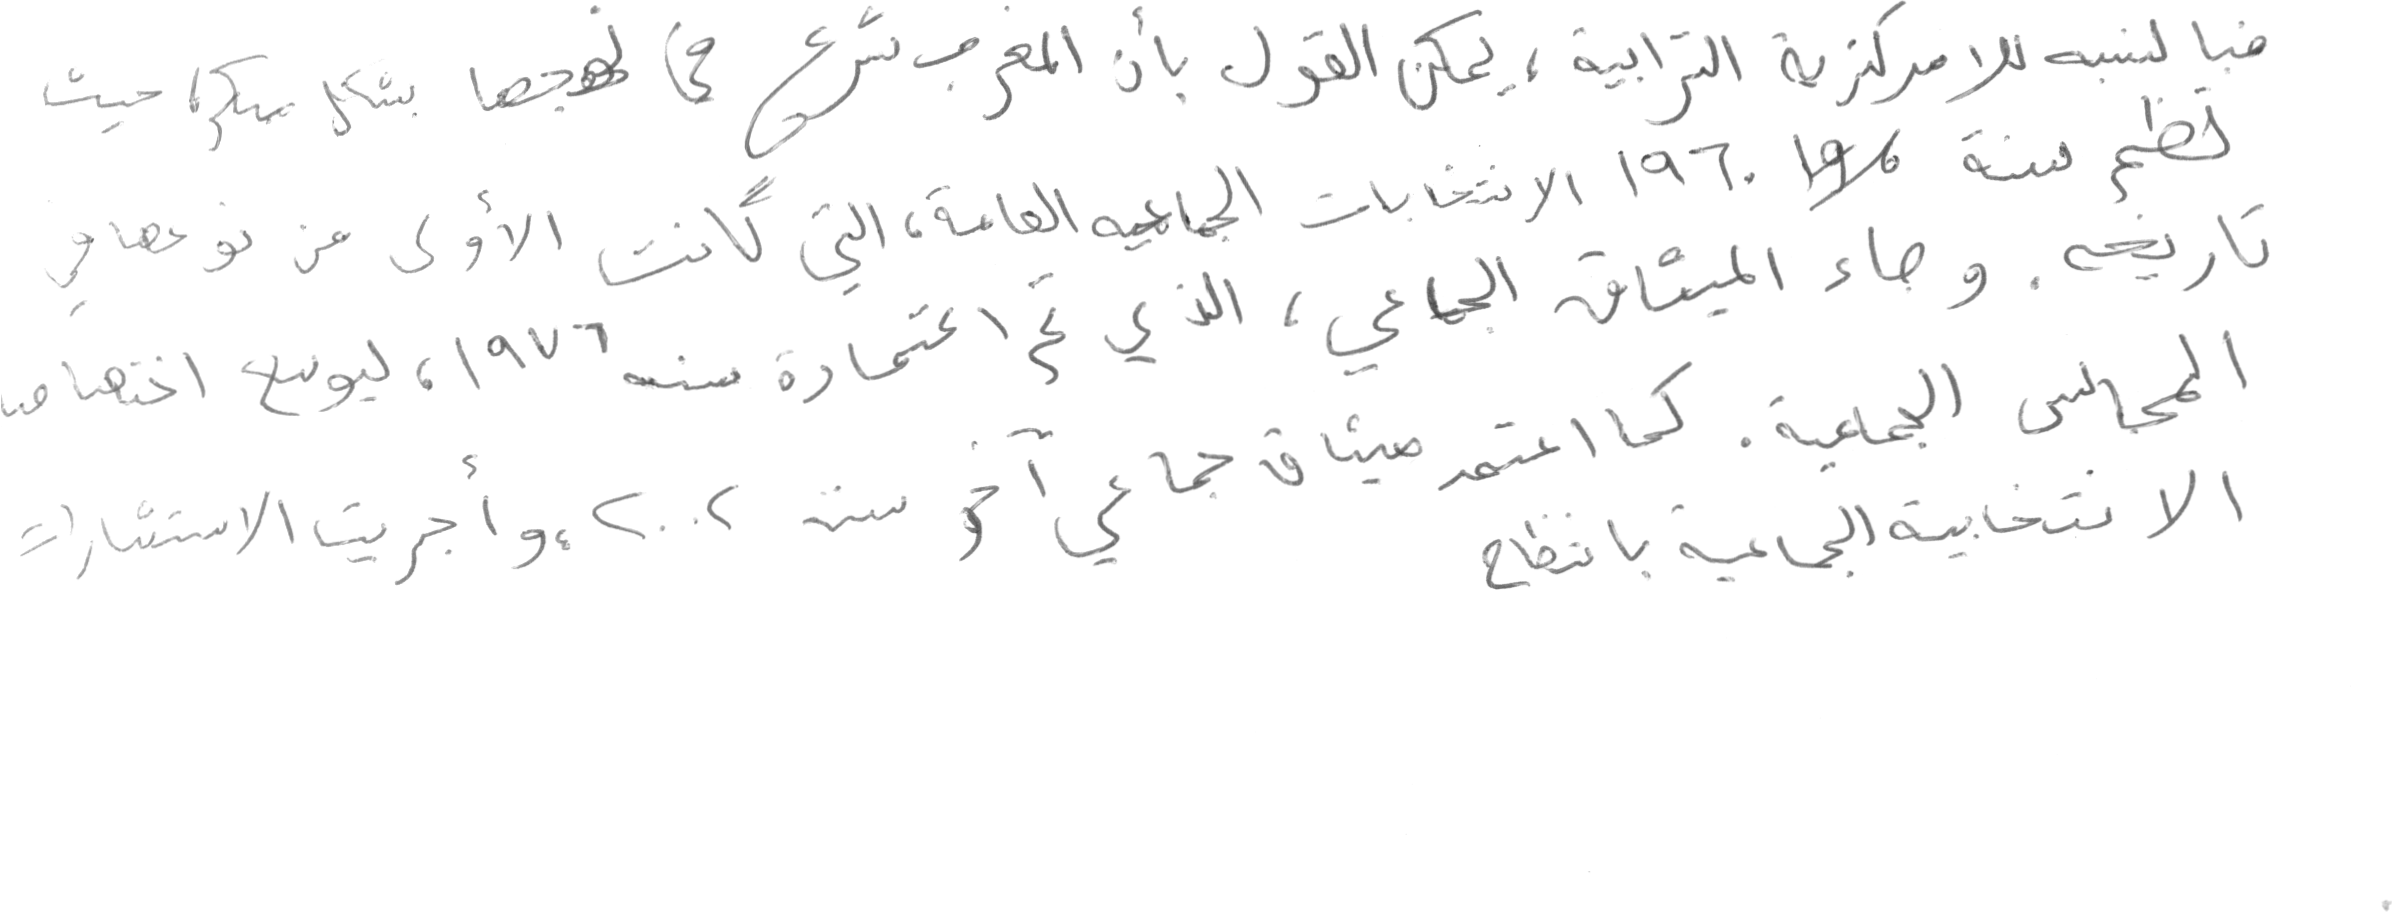 فبالنسبه للامركزية الترابية، يمكن القول بأن المغرب شرع في نهجها بشكل مبكر، حيث
نظم سنة ١٩٦٠ الانتخابات الجماعيه العامة، التي كانت الأولى من نوعها في
تاريخه. وجاء الميثاق الجماعي، الذي تم اعتمادة سنه ١٩٧٦، ليوسع اختصاصا
المجالس الجماعية. كما اعتمد ميثاق جماعي آخر سنة ٢٠٠٢، وأجريت الاستشارات
الانتخابية الجماعية بانتظام